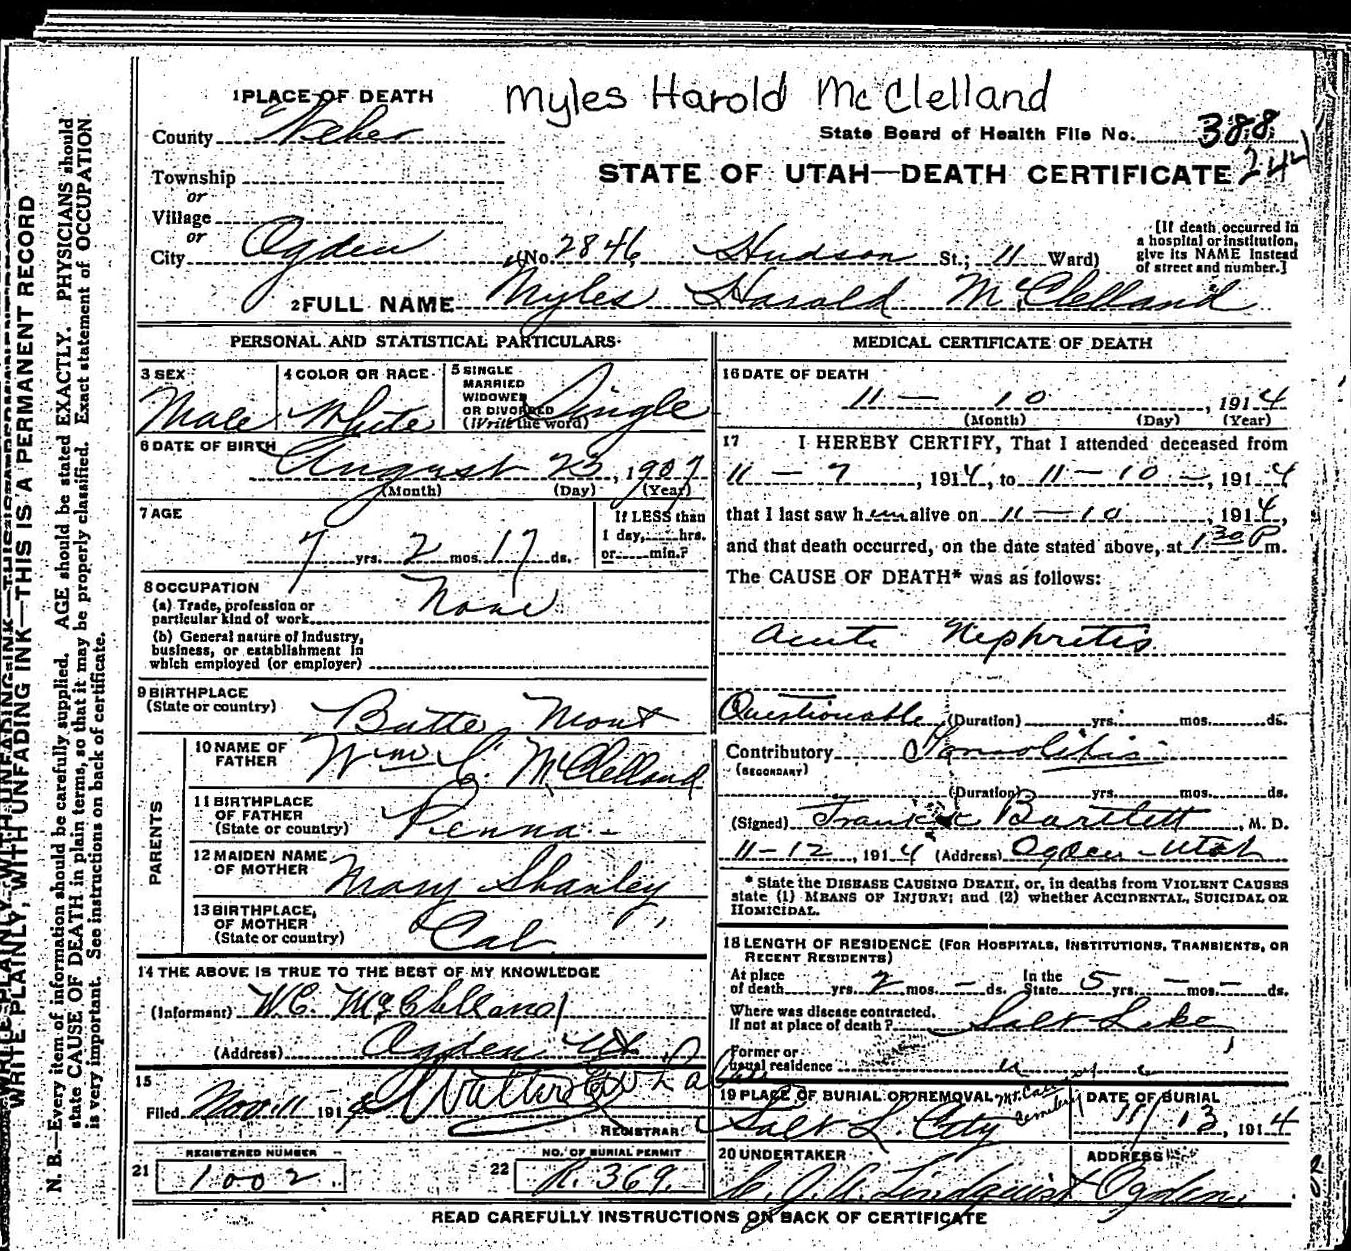 Myles Harold McClelland
1 PLACE OF DEATH
County Weber
State Board of Health File No. 388
244
Township
STATE OF UTAH—DEATH CERTIFICATE
or
Village
or
City Ogden (No. 2846 Hudson St.; 11 Ward)
[If death occurred in
a hospital or institution,
give its NAME instead
of street and number.]
2 FULL NAME Myles Harold McClelland
PERSONAL AND STATISTICAL PARTICULARS
3 SEX
Male
4 COLOR OR RACE
White
5 SINGLE
MARRIED
WIDOWED
OR DIVORCED
(Write the word)
Single
6 DATE OF BIRTH
August 23, 1907
(Month) (Day) (Year)
7 AGE
7 yrs. 2 mos. 17 ds.
If LESS than
1 day, hrs.
or min.?
8 OCCUPATION
(a) Trade, profession or
particular kind of work None
(b) General nature of industry,
business, or establishment in
which employed (or employer)
9 BIRTHPLACE
(State or country) Butte, Mont
PARENTS
10 NAME OF
FATHER Wm C. McClelland
11 BIRTHPLACE
OF FATHER
(State or country) Penna.
12 MAIDEN NAME
OF MOTHER Mary Shanley
13 BIRTHPLACE,
OF MOTHER
(State or country) Cal
14 THE ABOVE IS TRUE TO THE BEST OF MY KNOWLEDGE
(Informant) W.C. McClelland
(Address) Ogden Ut
15
Filed Nov. 11 1914
REGISTRAR
21 REGISTERED NUMBER
1002
22 NO. OF BURIAL PERMIT
R. 369
MEDICAL CERTIFICATE OF DEATH
16 DATE OF DEATH
11 — 10, 1914
(Month) (Day) (Year)
17 I HEREBY CERTIFY, That I attended deceased from
11 — 7, 1914, to 11 — 10 —, 1914
that I last saw him alive on 11 — 10, 1914,
and that death occurred, on the date stated above, at 1 30 P m.
The CAUSE OF DEATH* was as follows:
Acute Nephritis
Questionable (Duration) yrs. mos. ds.
Contributory Tonsolitis
(SECONDARY)
(Duration) yrs. mos. ds.
(Signed) Frank K Bartlett, M. D.
11-12, 1914 (Address) Ogden Utah
* State the DISEASE CAUSING DEATH, or, in deaths from VIOLENT CAUSES
state (1) MEANS OF INJURY; and (2) whether ACCIDENTAL, SUICIDAL OR
HOMICIDAL.
18 LENGTH OF RESIDENCE (FOR HOSPITALS, INSTITUTIONS, TRANSIENTS, OR
RECENT RESIDENTS)
At place
of death yrs. 2 mos. — ds.
In the
State 5 yrs. — mos. — ds.
Where was disease contracted,
if not at place of death? Salt Lake
Former or
usual residence " " "
19 PLACE OF BURIAL OR REMOVAL
Salt L. City
DATE OF BURIAL
11/13, 1914
20 UNDERTAKER
Lindquist
ADDRESS
Ogden
READ CAREFULLY INSTRUCTIONS ON BACK OF CERTIFICATE
WRITE PLAINLY, WITH UNFADING INK—THIS IS A PERMANENT RECORD
N. B.—Every item of information should be carefully supplied. AGE should be stated EXACTLY. PHYSICIANS should
state CAUSE OF DEATH in plain terms, so that it may be properly classified. Exact statement of OCCUPATION
is very important. See instructions on back of certificate.